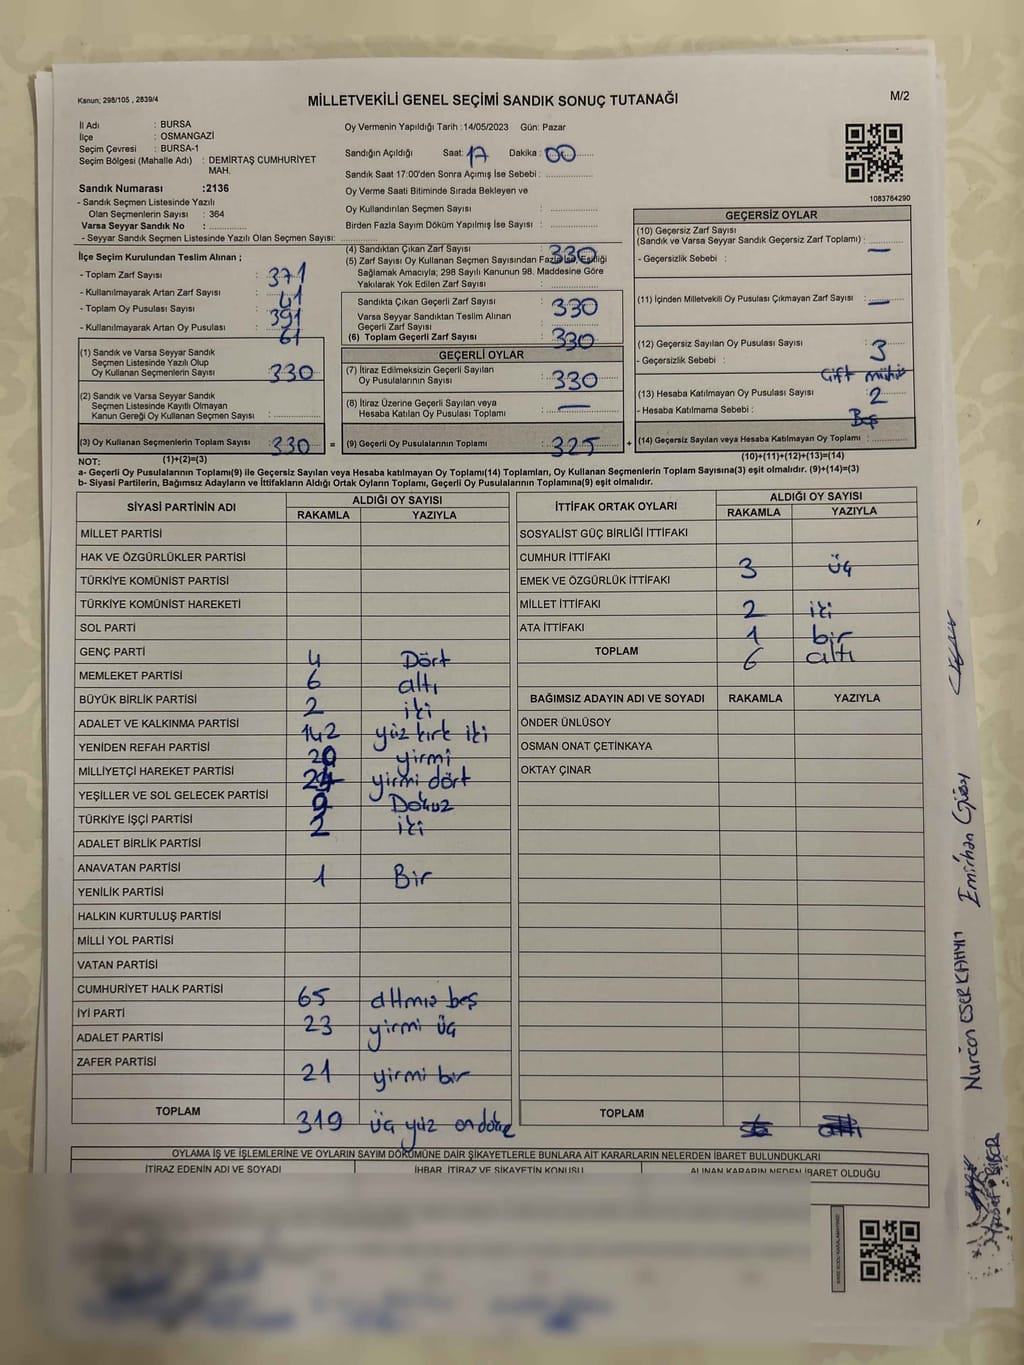 Kanun; 298/105 , 2839/4
MİLLETVEKİLİ GENEL SEÇİMİ SANDIK SONUÇ TUTANAĞI
M/2
İl Adı : BURSA
İlçe : OSMANGAZİ
Seçim Çevresi : BURSA-1
Seçim Bölgesi (Mahalle Adı) : DEMİRTAŞ CUMHURİYET
MAH.
Sandık Numarası :2136
- Sandık Seçmen Listesinde Yazılı
Olan Seçmenlerin Sayısı : 364
Varsa Seyyar Sandık No :
- Seyyar Sandık Seçmen Listesinde Yazılı Olan Seçmen Sayısı:
İlçe Seçim Kurulundan Teslim Alınan ;
- Toplam Zarf Sayısı : 371
- Kullanılmayarak Artan Zarf Sayısı : 41
- Toplam Oy Pusulası Sayısı : 391
- Kullanılmayarak Artan Oy Pusulası : 61
(1) Sandık ve Varsa Seyyar Sandık
Seçmen Listesinde Yazılı Olup
Oy Kullanan Seçmenlerin Sayısı : 330
(2) Sandık ve Varsa Seyyar Sandık
Seçmen Listesinde Kayıtlı Olmayan
Kanun Gereği Oy Kullanan Seçmen Sayısı :
(3) Oy Kullanan Seçmenlerin Toplam Sayısı : 330 =
Oy Vermenin Yapıldığı Tarih :14/05/2023 Gün: Pazar
Sandığın Açıldığı Saat: 17 Dakika : 00
Sandık Saat 17:00'den Sonra Açımış İse Sebebi :
Oy Verme Saati Bitiminde Sırada Bekleyen ve
Oy Kullandırılan Seçmen Sayısı :
Birden Fazla Sayım Döküm Yapılmış İse Sayısı :
(4) Sandıktan Çıkan Zarf Sayısı : 330
(5) Zarf Sayısı Oy Kullanan Seçmen Sayısından Fazla İse, Eşitliği
Sağlamak Amacıyla; 298 Sayılı Kanunun 98. Maddesine Göre
Yakılarak Yok Edilen Zarf Sayısı :
Sandıkta Çıkan Geçerli Zarf Sayısı : 330
Varsa Seyyar Sandıktan Teslim Alınan
Geçerli Zarf Sayısı :
(6) Toplam Geçerli Zarf Sayısı : 330
GEÇERLİ OYLAR
(7) İtiraz Edilmeksizin Geçerli Sayılan
Oy Pusulalarının Sayısı : 330
(8) İtiraz Üzerine Geçerli Sayılan veya
Hesaba Katılan Oy Pusulası Toplamı : —
(9) Geçerli Oy Pusulalarının Toplamı : 325 +
1083764290
GEÇERSİZ OYLAR
(10) Geçersiz Zarf Sayısı
(Sandık ve Varsa Seyyar Sandık Geçersiz Zarf Toplamı) : —
- Geçersizlik Sebebi :
(11) İçinden Milletvekili Oy Pusulası Çıkmayan Zarf Sayısı : —
(12) Geçersiz Sayılan Oy Pusulası Sayısı : 3
- Geçersizlik Sebebi : Çift mühür
(13) Hesaba Katılmayan Oy Pusulası Sayısı : 2
- Hesaba Katılmama Sebebi : Boş
(14) Geçersiz Sayılan veya Hesaba Katılmayan Oy Toplamı :
NOT: (1)+(2)=(3) (10)+(11)+(12)+(13)=(14)
a- Geçerli Oy Pusulalarının Toplamı(9) ile Geçersiz Sayılan veya Hesaba katılmayan Oy Toplamı(14) Toplamları, Oy Kullanan Seçmenlerin Toplam Sayısına(3) eşit olmalıdır. (9)+(14)=(3)
b- Siyasi Partilerin, Bağımsız Adayların ve İttifakların Aldığı Ortak Oyların Toplamı, Geçerli Oy Pusulalarının Toplamına(9) eşit olmalıdır.
SİYASİ PARTİNİN ADI ALDIĞI OY SAYISI
RAKAMLA YAZIYLA
MİLLET PARTİSİ
HAK VE ÖZGÜRLÜKLER PARTİSİ
TÜRKİYE KOMÜNİST PARTİSİ
TÜRKİYE KOMÜNİST HAREKETİ
SOL PARTİ
GENÇ PARTİ 4 Dört
MEMLEKET PARTİSİ 6 altı
BÜYÜK BİRLİK PARTİSİ 2 iki
ADALET VE KALKINMA PARTİSİ 142 yüz kırk iki
YENİDEN REFAH PARTİSİ 20 yirmi
MİLLİYETÇİ HAREKET PARTİSİ 24 yirmi dört
YEŞİLLER VE SOL GELECEK PARTİSİ 9 Dokuz
TÜRKİYE İŞÇİ PARTİSİ 2 iki
ADALET BİRLİK PARTİSİ
ANAVATAN PARTİSİ 1 Bir
YENİLİK PARTİSİ
HALKIN KURTULUŞ PARTİSİ
MİLLİ YOL PARTİSİ
VATAN PARTİSİ
CUMHURİYET HALK PARTİSİ 65 altmış beş
İYİ PARTİ 23 yirmi üç
ADALET PARTİSİ
ZAFER PARTİSİ 21 yirmi bir
TOPLAM 319 üç yüz ondokuz
İTTİFAK ORTAK OYLARI ALDIĞI OY SAYISI
RAKAMLA YAZIYLA
SOSYALİST GÜÇ BİRLİĞİ İTTİFAKI
CUMHUR İTTİFAKI 3 üç
EMEK VE ÖZGÜRLÜK İTTİFAKI
MİLLET İTTİFAKI 2 iki
ATA İTTİFAKI 1 bir
TOPLAM 6 altı
BAĞIMSIZ ADAYIN ADI VE SOYADI RAKAMLA YAZIYLA
ÖNDER ÜNLÜSOY
OSMAN ONAT ÇETİNKAYA
OKTAY ÇINAR
TOPLAM
OYLAMA İŞ VE İŞLEMLERİNE VE OYLARIN SAYIM DÖKÜMÜNE DAİR ŞİKAYETLERLE BUNLARA AİT KARARLARIN NELERDEN İBARET BULUNDUKLARI
İTİRAZ EDENİN ADI VE SOYADI İHBAR, İTİRAZ VE ŞİKAYETİN KONUSU ALINAN KARARIN NEDEN İBARET OLDUĞU
Emirhan
Nurcan ESER
BİBER